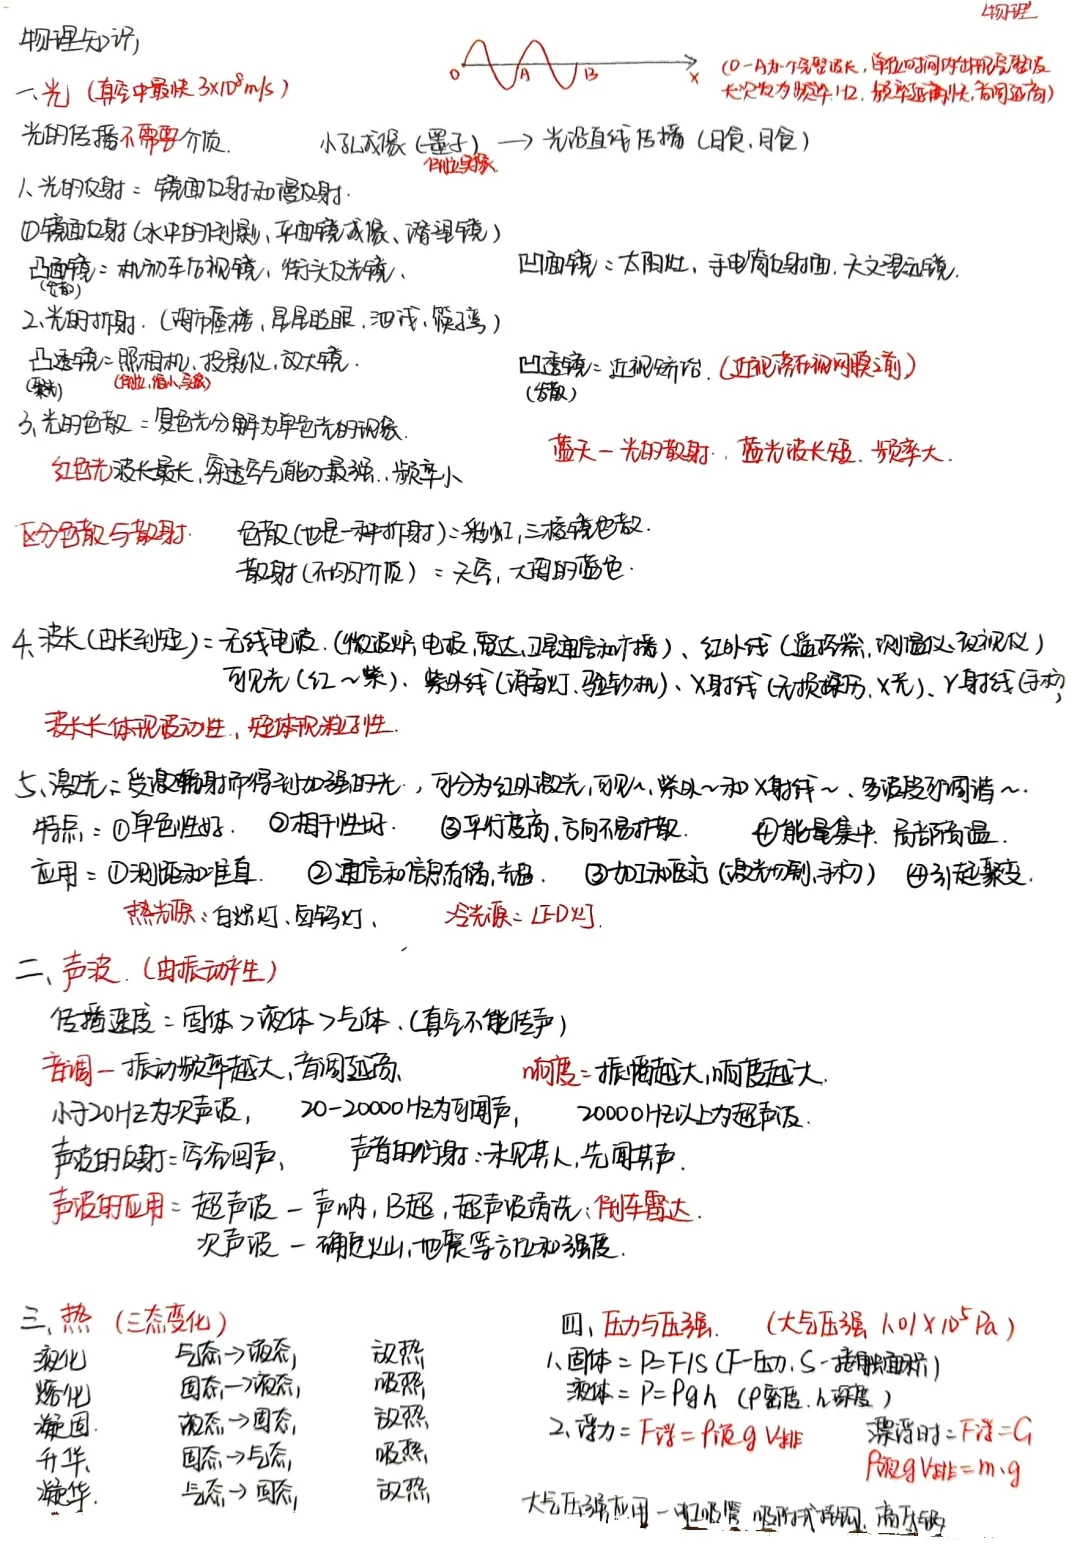 物理
物理知识,
O A B x
(O-A为一个完整波长,单位时间内出现完整波
长次数为频率Hz,频率越高越快,音调越高)
一、光(真空中最快3×10⁸m/s)
光的传播不需要介质. 小孔成像(墨子)→光沿直线传播(日食,月食)
倒立实像
1、光的反射=镜面反射和漫反射.
①镜面反射(水中的倒影、平面镜成像、潜望镜)
凸面镜=机动车后视镜、街头反光镜、 凹面镜=太阳灶,手电筒反射面.天文望远镜.
(发散)
2、光的折射.(海市蜃楼,星星眨眼.池浅、筷弯)
凸透镜=照相机、投影仪,放大镜. 凹透镜=近视矫治.(近视落在视网膜之前)
(聚光) (倒立,缩小,实像) (发散)
3、光的色散=复色光分解为单色光的现象.
蓝天—光的散射.,蓝光波长短.频率大.
红色光波长最长,穿透空气能力最强.,频率小
区分色散与散射. 色散(也是一种折射)=彩虹,三棱镜色散.
散射(不均匀介质)=天空,大海的蓝色.
4、波长(由长到短)=无线电波.(微波炉,电报,雷达,卫星通信和广播)、红外线(遥控器,测温仪、夜视仪)
可见光(红~紫)、紫外线(消毒灯、验钞机)、X射线(无损探伤,X光)、γ射线(手术),
波长长体现波动性,短体现粒子性.
5、激光=受激辐射而得到加强的光.,可分为红外激光,可见~,紫外~和X射线~、多波段可调谐~.
特点=①单色性好. ②相干性好. ③平行度高,方向不易扩散. ④能量集中.局部高温.
应用=①测距和准直. ②通信和信息存储,光. ③加工和医疗(激光切割,手术) ④引起聚变.
热光源:白炽灯、卤钨灯、 冷光源=LED灯.
二、声波.(由振动产生)
传播速度=固体>液体>气体.(真空不能传声)
音调—振动频率越大,音调越高、 响度=振幅越大,响度越大.
小于20HZ为次声波, 20-20000HZ为可闻声, 20000HZ以上为超声波.
声波的反射=空谷回声、 声音的衍射:未见其人,先闻其声.
声波的应用=超声波—声呐,B超,超声波清洗;倒车雷达.
次声波—确定火山,地震等方位和强度.
三、热(三态变化)
液化 气态→液态, 放热,
熔化 固态→液态, 吸热,
凝固. 液态→固态, 放热,
升华、 固态→气态, 吸热,
凝华. 气态→固态, 放热,
四、压力与压强. (大气压强1.01×10⁵Pa)
1、固体=P=F/S(F-压力.S-接触面积)
液体=P=ρgh (ρ密度.h深度)
2、浮力=F浮=ρ液gV排 漂浮时=F浮=G
ρ液gV排=m.g
大气压强应用—虹吸管 吸附式挂钩.高压锅